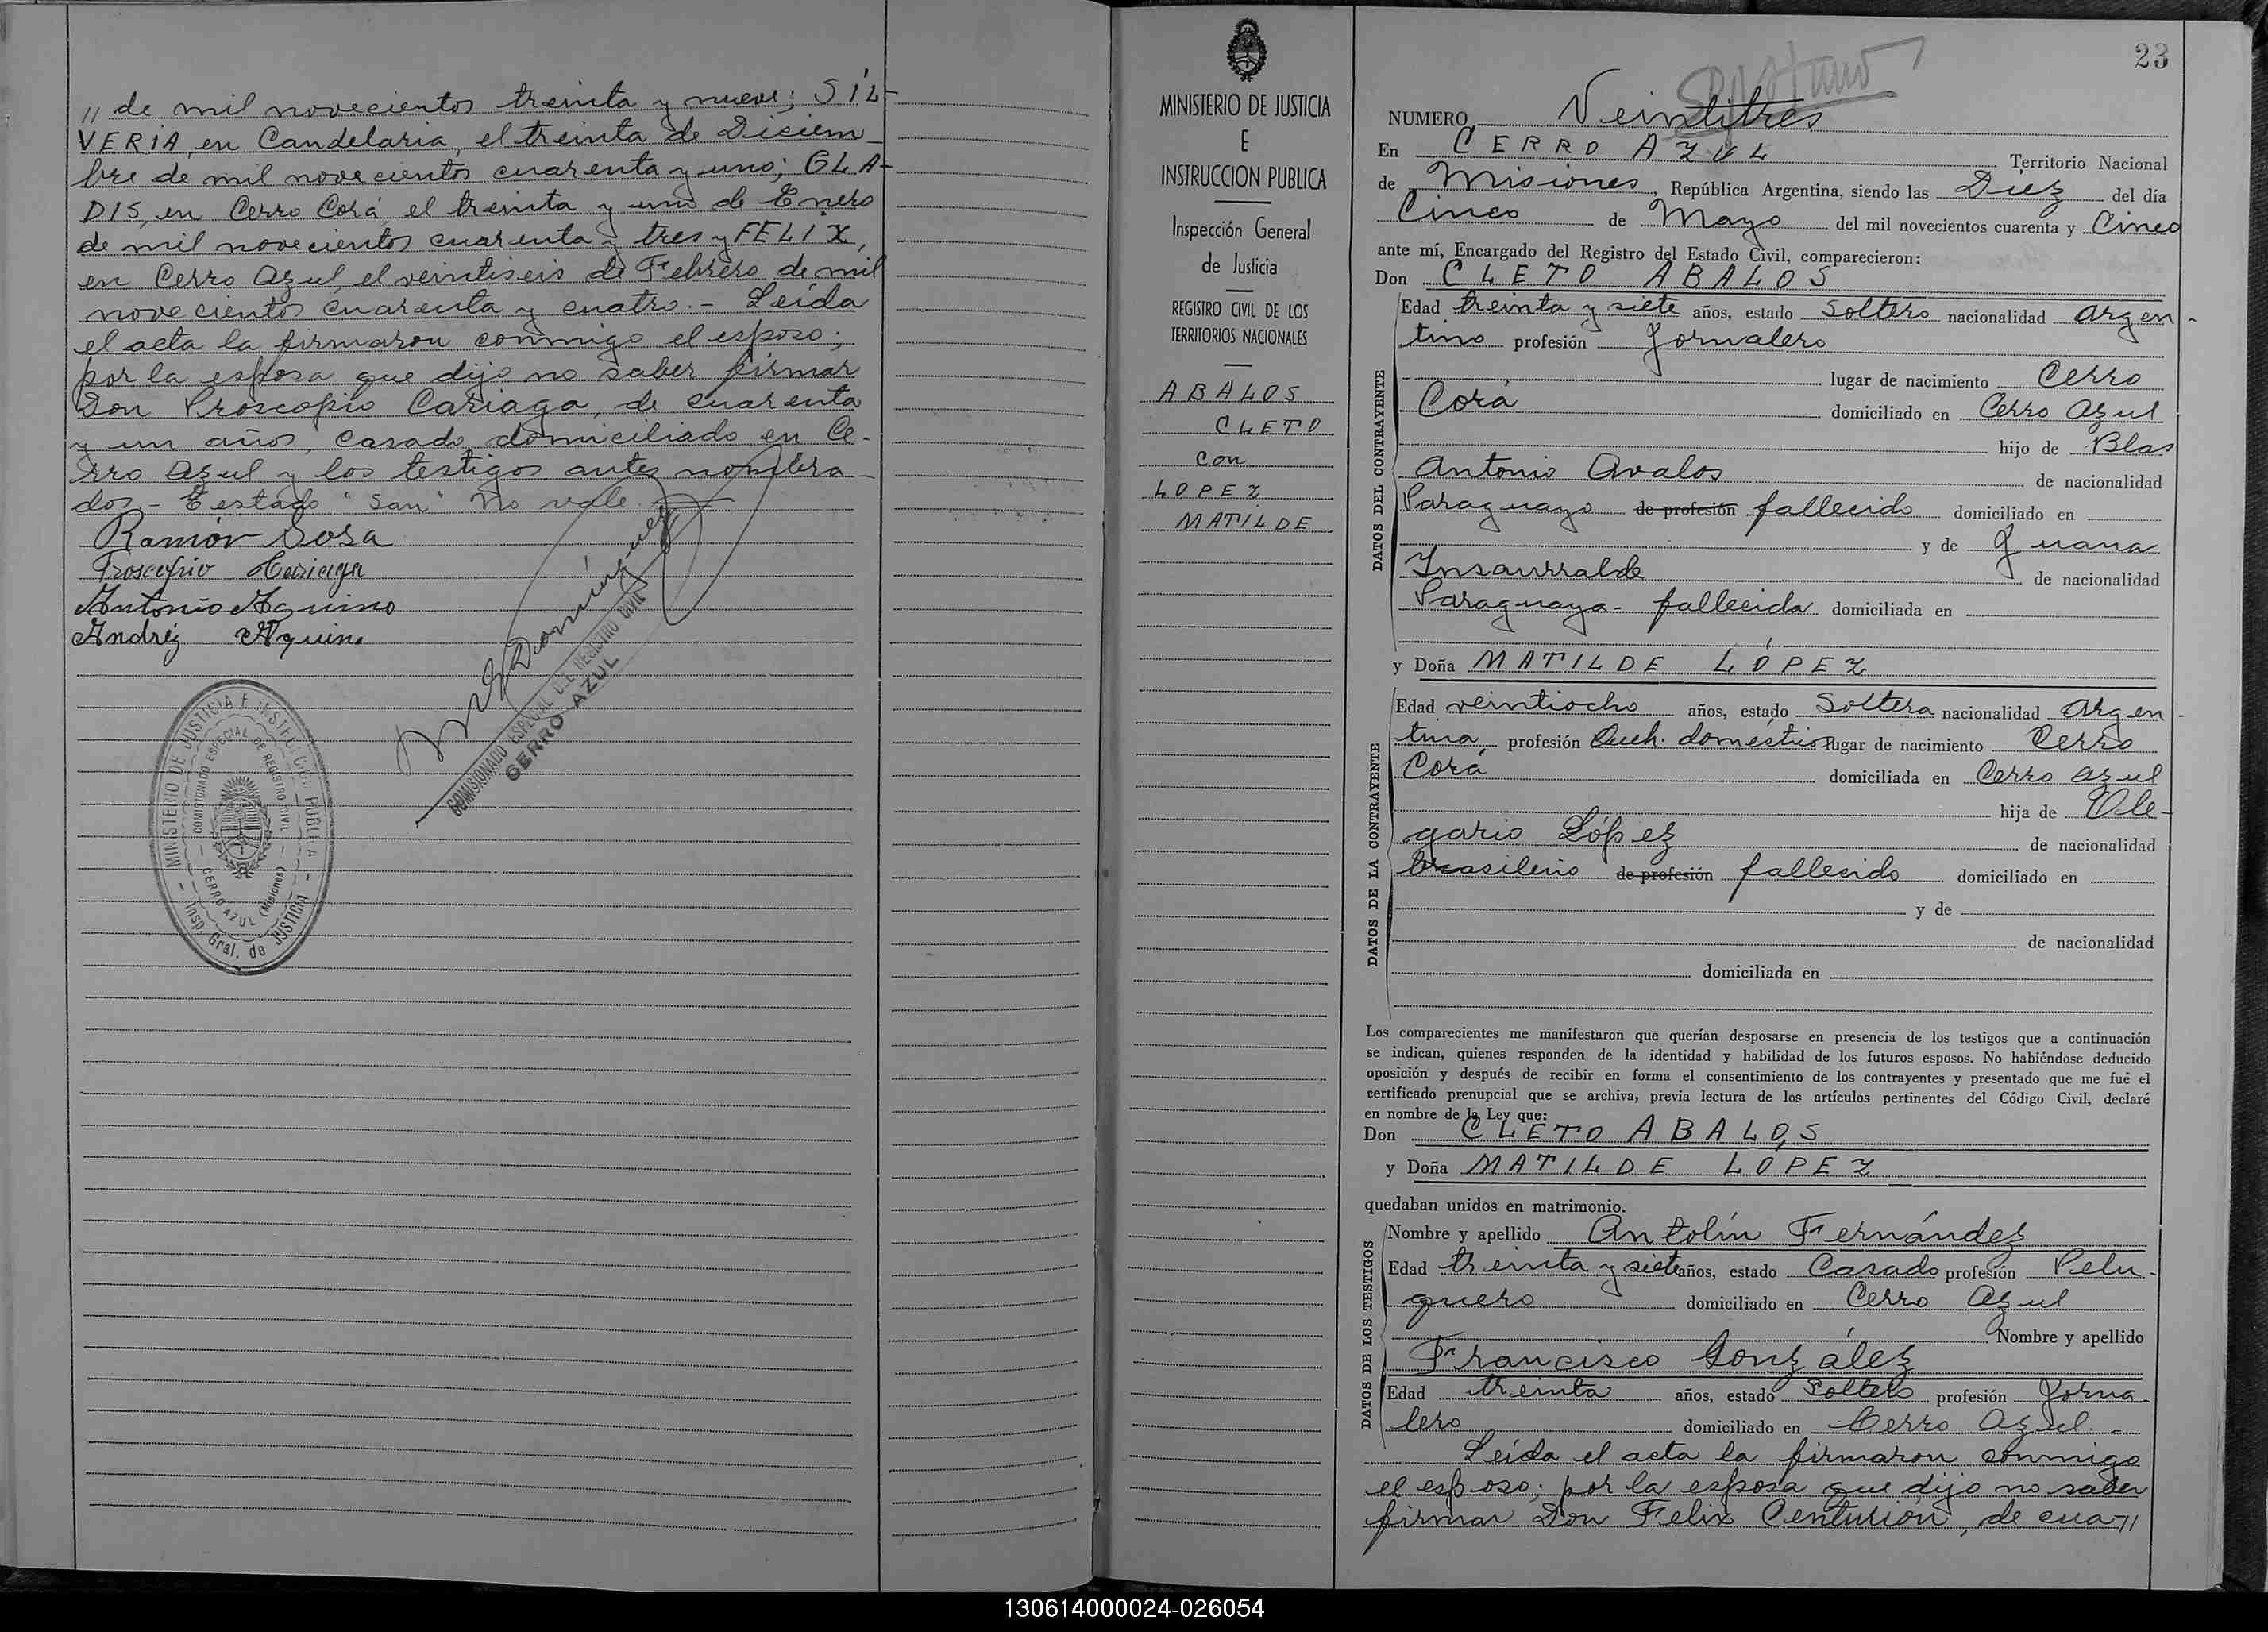 // de mil novecientos treinta y nueve; SIL-
VERIA, en Candelaria, el treinta de Diciem-
bre de mil novecientos cuarenta y uno; GLA-
DIS, en Cerro Corá el treinta y uno de Enero
de mil novecientos cuarenta y tres y FELIX,
en Cerro Azul, el veintiseis de Febrero de mil
novecientos cuarenta y cuatro.- Leída
el acta la firmaron conmigo el esposo;
por la esposa que dijo no saber firmar
Don Proscopio Cariaga, de cuarenta
y un años, casado, domiciliado en Ce-
rro Azul y los testigos antes nombra-
dos - Testado "San" No vale.
Ramón Sosa
Proscopio Cariaga
Antonio Aquino
Andréz Aquino
Domínguez
COMISIONADO ESPECIAL DEL REGISTRO CIVIL
CERRO AZUL
MINISTERIO DE JUSTICIA E INSTRUCCION PUBLICA
- Insp. Gral. de JUSTICIA -
COMISIONADO ESPECIAL DE REGISTRO CIVIL
CERRO AZUL (Misiones)
MINISTERIO DE JUSTICIA
E
INSTRUCCION PUBLICA
Inspección General
de Justicia
REGISTRO CIVIL DE LOS
TERRITORIOS NACIONALES
ABALOS
CLETO
con
LOPEZ
MATILDE
23
NUMERO Veintitres
En CERRO AZUL Territorio Nacional
de Misiones, República Argentina, siendo las Diez del día
Cinco de Mayo del mil novecientos cuarenta y Cinco
ante mí, Encargado del Registro del Estado Civil, comparecieron:
Don CLETO ABALOS
DATOS DEL CONTRAYENTE
Edad treinta y siete años, estado Soltero nacionalidad Argen-
tino profesión Jornalero
lugar de nacimiento Cerro
Corá domiciliado en Cerro Azul
hijo de Blas
Antonio Avalos de nacionalidad
Paraguayo de profesión fallecido domiciliado en
y de Juana
Insaurralde de nacionalidad
Paraguaya - fallecida domiciliada en
y Doña MATILDE LÓPEZ
DATOS DE LA CONTRAYENTE
Edad veintiocho años, estado Soltera nacionalidad Argen-
tina, profesión Queh. doméstic lugar de nacimiento Cerro
Corá domiciliada en Cerro Azul
hija de Ole-
gario López de nacionalidad
brasileño de profesión fallecido domiciliado en
y de
de nacionalidad
domiciliada en
Los comparecientes me manifestaron que querían desposarse en presencia de los testigos que a continuación
se indican, quienes responden de la identidad y habilidad de los futuros esposos. No habiéndose deducido
oposición y después de recibir en forma el consentimiento de los contrayentes y presentado que me fué el
certificado prenupcial que se archiva, previa lectura de los artículos pertinentes del Código Civil, declaré
en nombre de la Ley que:
Don CLETO ABALOS
y Doña MATILDE LOPEZ
quedaban unidos en matrimonio.
DATOS DE LOS TESTIGOS
Nombre y apellido Antolín Fernández
Edad treinta y siete años, estado Casado profesión Pelu-
quero domiciliado en Cerro Azul
Nombre y apellido
Francisco González
Edad treinta años, estado Soltero profesión Jorna-
lero domiciliado en Cerro Azul.-
Leída el acta la firmaron conmigo
el esposo; por la esposa que dijo no saber
firmar Don Felix Centurión, de cua//
130614000024-026054